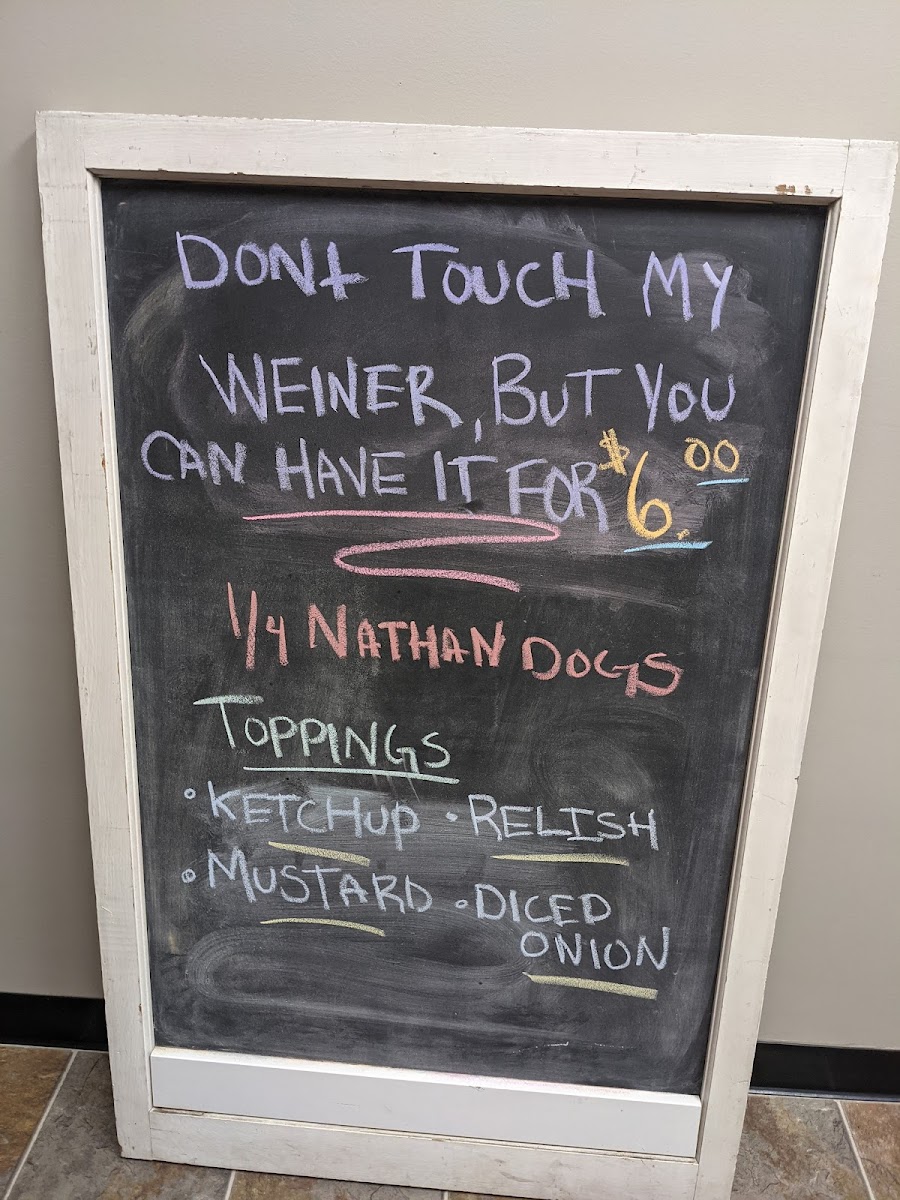 DONT TOUCH MY
WEINER, BUT YOU
CAN HAVE IT FOR $6.00
1/4 NATHAN DOGS
TOPPINGS
• KETCHUP • RELISH
• MUSTARD • DICED
ONION